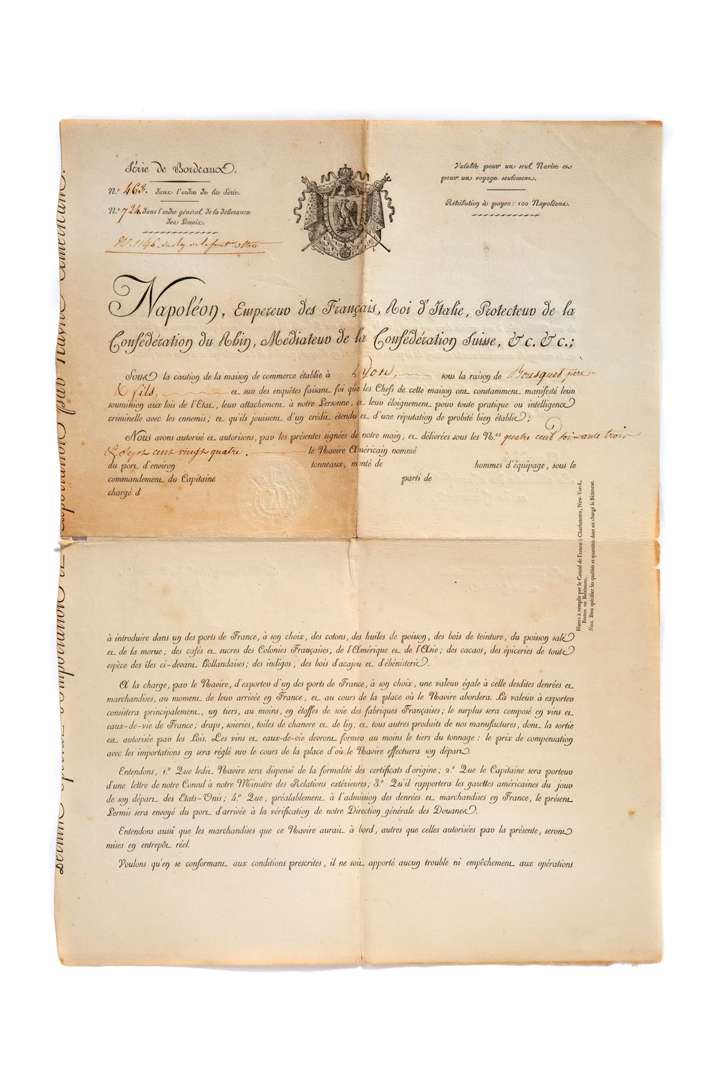 Série de Bordeaux.
N.º 463. dans l'ordre de la Série.
N.º 724 dans l'ordre général de la délivrance
des Permis.
Valable pour un seul Navire et
pour un voyage seulement.
Rétribution à payer: 100 Napoléons.
Napoléon, Empereur des Français, Roi d'Italie, Protecteur de la
Confédération du Rhin, Médiateur de la Confédération Suisse, &c. &c.;
Sous la caution de la maison de commerce établie à Lyon, sous la raison de Bousquet père
& fils, et sur des enquêtes faisant foi que les Chefs de cette maison ont constamment manifesté leur
soumission aux lois de l'État, leur attachement à notre Personne, et leur éloignement pour toute pratique ou intelligence
criminelle avec les ennemis, et qu'ils jouissent d'un crédit étendu et d'une réputation de probité bien établie;
Nous avons autorisé et autorisons, par les présentes signées de notre main, et délivrées sous les N.os quatre cent soixante trois
& Sept cent vingt quatre. le Navire Américain nommé
du port d'environ tonneaux, monté de hommes d'équipage, sous le
commandement du Capitaine parti de
chargé d
à introduire dans un des ports de France, à son choix, des cotons, des huiles de poisson, des bois de teinture, du poisson salé
et de la morue; des cafés et sucres des Colonies Françaises, de l'Amérique et de l'Asie; des cacaos, des épiceries de toute
espèce des îles ci-devant Hollandaises; des indigos, des bois d'acajou et d'ébénisterie.
A la charge, par le Navire, d'exporter d'un des ports de France, à son choix, une valeur égale à celle desdites denrées et
marchandises, au moment de leur arrivée en France, et au cours de la place où le Navire abordera. La valeur à exporter
consistera principalement, un tiers, au moins, en étoffes de soie des fabriques Françaises; le surplus sera composé en vins et
eaux-de-vie de France; draps, soieries, toiles de chanvre et de lin, et tous autres produits de nos manufactures, dont la sortie
est autorisée par les Lois. Les vins et eaux-de-vie devront former au moins le tiers du tonnage: le prix de compensation
avec les importations en sera réglé sur le cours de la place d'où le Navire effectuera son départ.
Entendons, 1.º Que ledit Navire sera dispensé de la formalité des certificats d'origine; 2.º Que le Capitaine sera porteur
d'une lettre de notre Consul à notre Ministre des Relations extérieures; 3.º Qu'il rapportera les gazettes américaines du jour
de son départ des États-Unis; 4.º Que, préalablement à l'admission des denrées et marchandises en France, le présent
Permis sera envoyé du port d'arrivée à la vérification de notre Direction générale des Douanes.
Entendons aussi que les marchandises que ce Navire aurait à bord, autres que celles autorisées par la présente, seront
mises en entrepôt réel.
Voulons qu'en se conformant aux conditions prescrites, il ne soit apporté aucun trouble ni empêchement aux opérations
Blancs à remplir par le Consul de France à Charlestown, New-York,
Boston ou Baltimore.
Nota. Bien spécifier les qualités et quantités dont est chargé le Bâtiment.